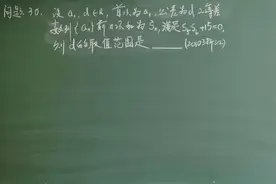 问题30. 设 a₁, d∈R, 首项为a₁, 公差为d的等差
数列{aₙ}前n项和为Sₙ, 满足S₅S₆+15=0,
则d的取值范围是______